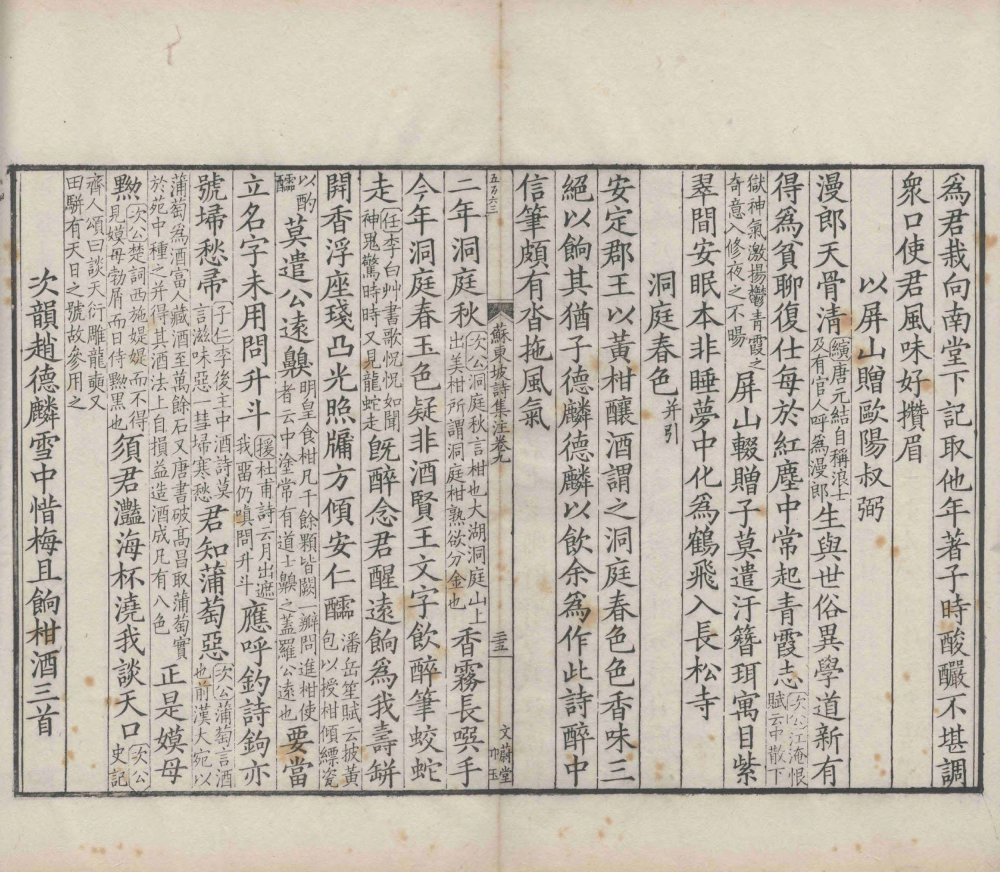 爲君栽向南堂下記取他年著子時酸釅不堪調
衆口使君風味好攢眉
以屏山贈歐陽叔弼
漫郎天骨清縯唐元結自稱浪士及有官人呼爲漫郎生與世俗異學道新有
得爲貧聊復仕每於紅塵中常起青霞志次公江淹恨賦云中散下
獄神氣激揚鬱青霞之奇意入修夜之不暘屏山輟贈子莫遣汙簪珥寓目紫
翠間安眠本非睡夢中化爲鶴飛入長松寺
洞庭春色并引
安定郡王以黃柑釀酒謂之洞庭春色色香味三
絕以餉其猶子德麟德麟以飲余爲作此詩醉中
信筆頗有沓拖風氣
五百六三 蘇東坡詩集注卷九 三五 文蔚堂
二年洞庭秋次公洞庭秋言柑也大湖洞庭山上出美柑所謂洞庭柑熟欲分金也香霧長噀手
今年洞庭春玉色疑非酒賢王文字飲醉筆蛟蛇
走任李白艸書歌怳怳如聞神鬼驚時時又見龍蛇走旣醉念君醒遠餉爲我壽缾
開香浮座琖凸光照牖方傾安仁醽潘岳笙賦云披黃包以授柑傾縹瓷
以酌醽莫遣公遠齅明皇食柑凡千餘顆皆闕一瓣問進柑使者云中塗常有道士齅之蓋羅公遠也要當
立名字未用問升斗援杜甫詩云月出遮我畱仍嗔問升斗應呼釣詩鉤亦
號埽愁帚子仁李後主中酒詩莫言滋味惡一彗埽寒愁君知蒲萄惡次公蒲萄言酒也前漢大宛以
蒲萄爲酒富人藏酒至萬餘石又唐書破高昌取蒲萄實於苑中種之并得其酒法上自損益造酒成凡有八色正是嫫母
黝次公楚詞西施媞媞而不得見嫫母勃屑而日侍黝黑也須君灩海杯澆我談天口次公史記
齊人頌曰談天衍雕龍奭又田駢有天口之號故參用之
次韻趙德麟雪中惜梅且餉柑酒三首